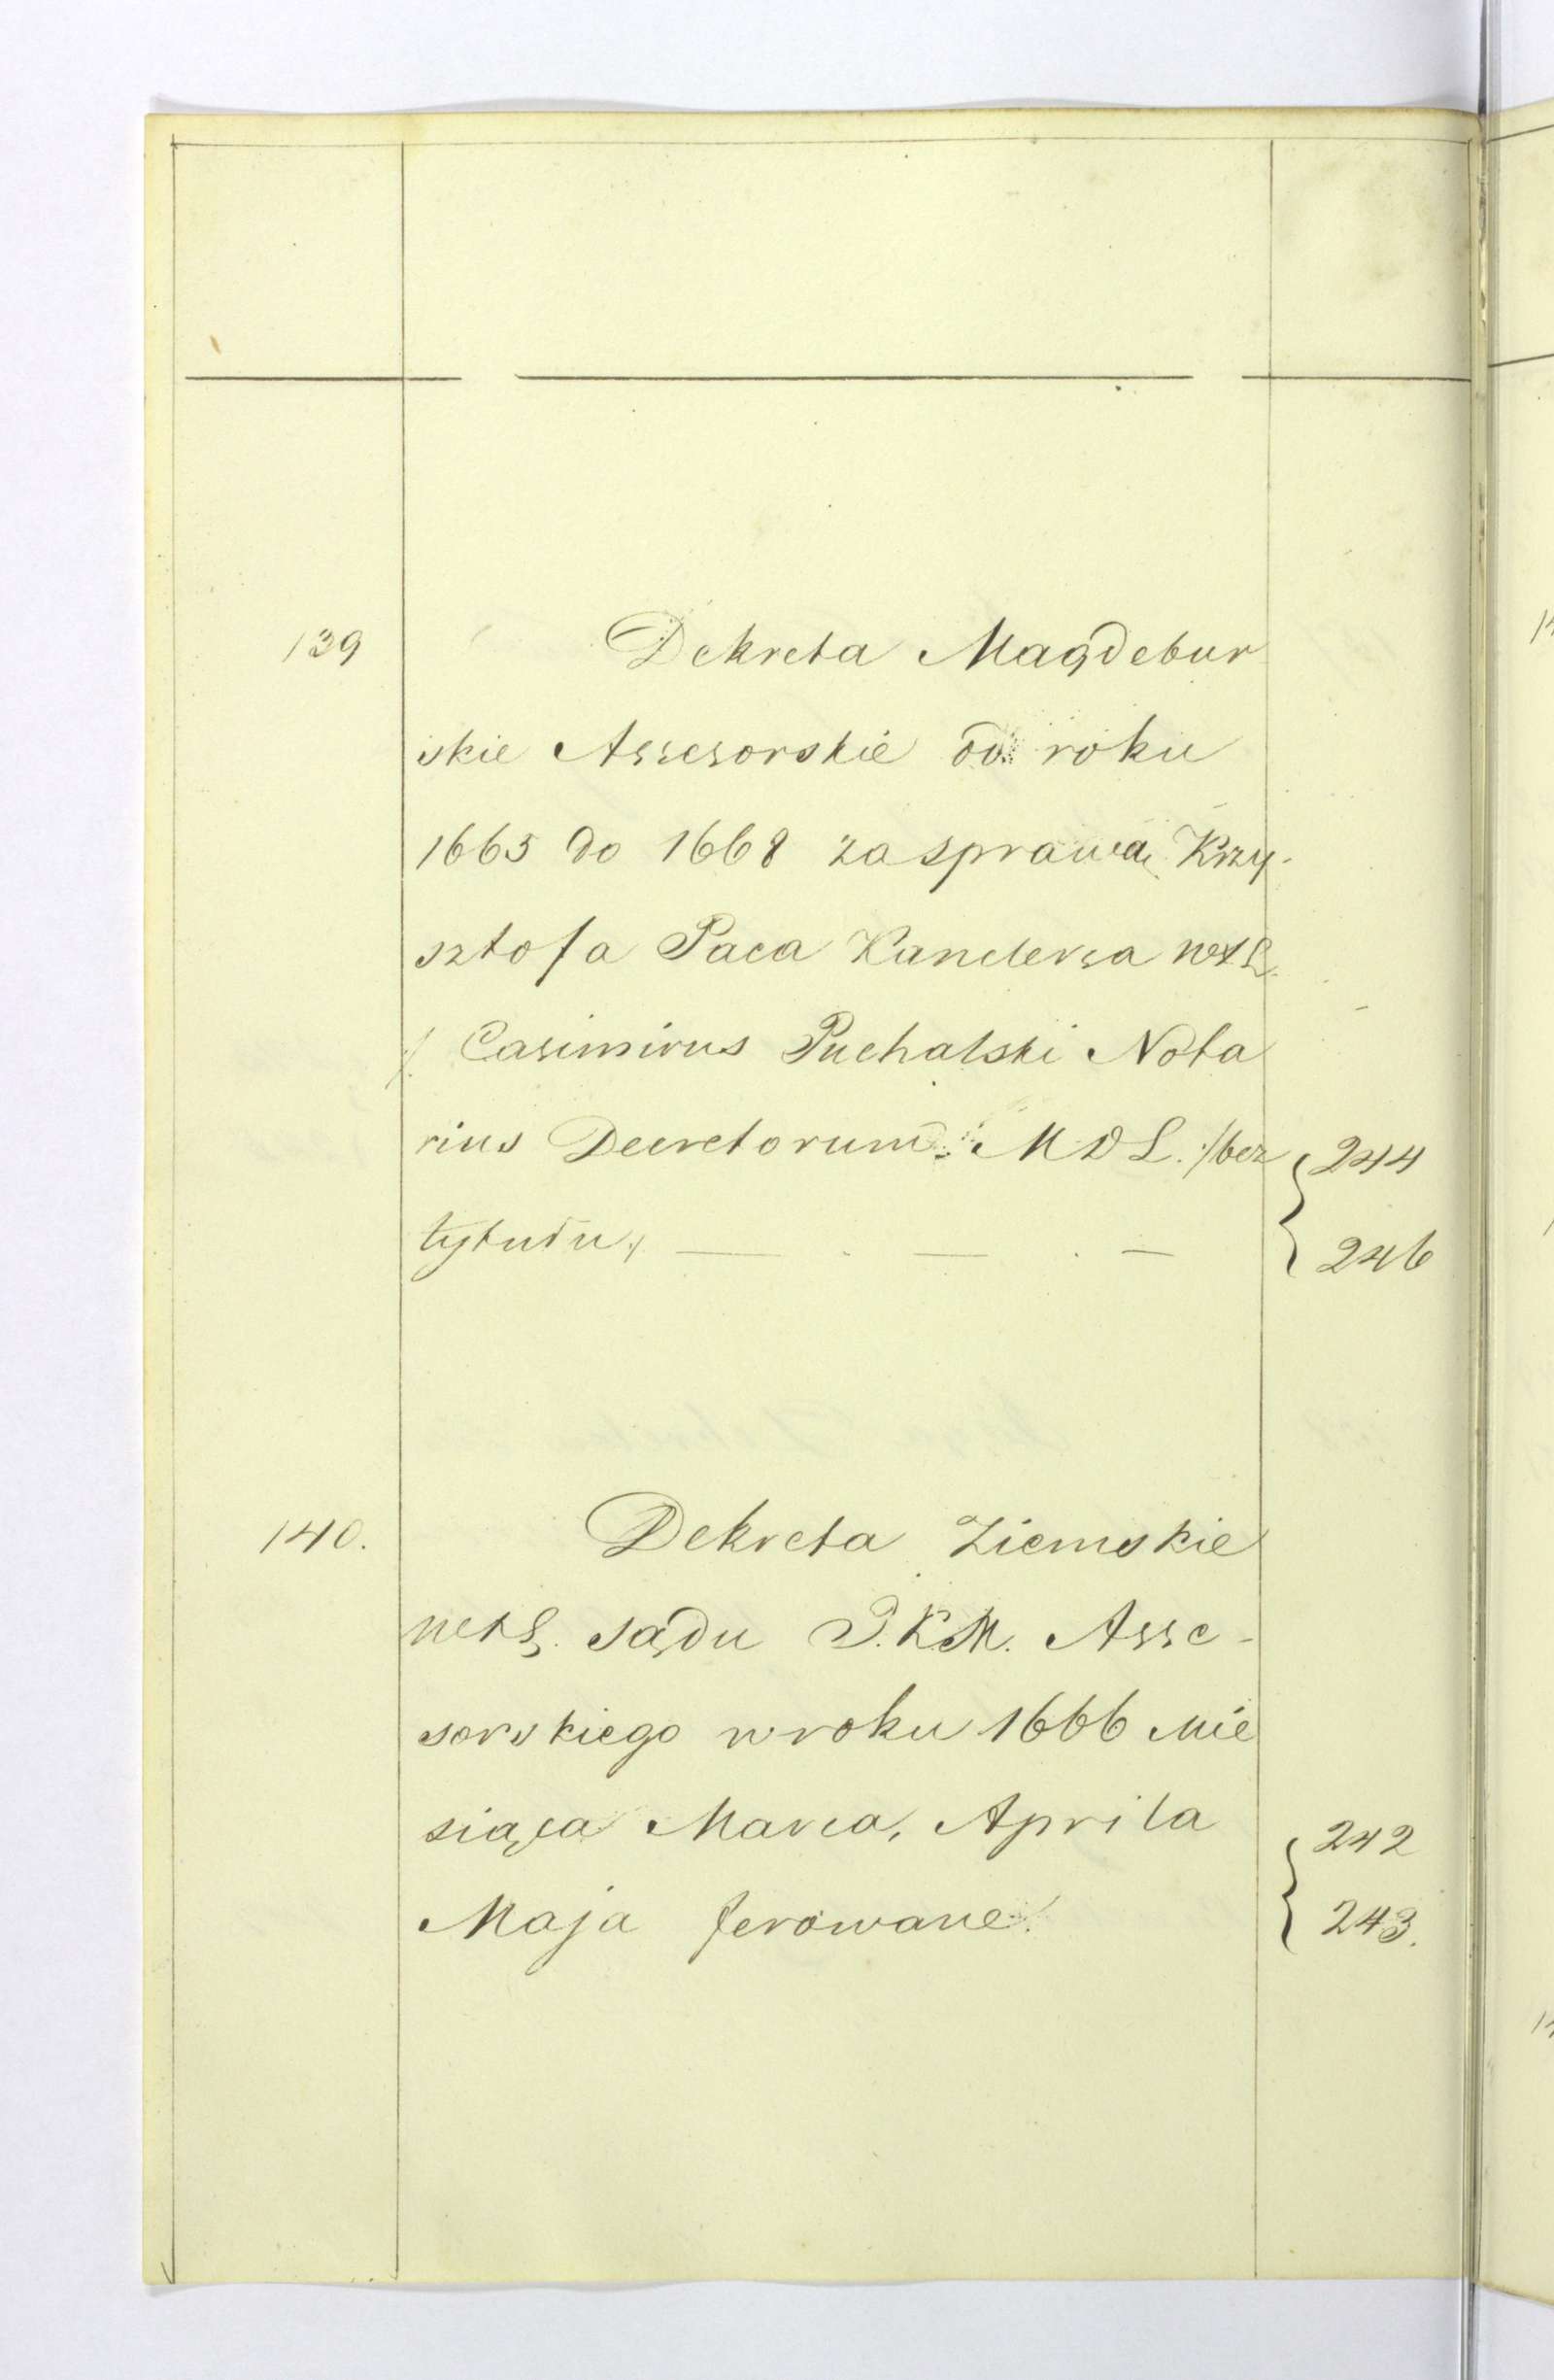 139 Dekreta Magdebur
skie Assesorskie od roku
1665 do 1668 za sprawą Krzy-
sztofa Paca Kanclerza WXL.
/: Casimirus Puchalski Nota
rius Decretorum M D L. :/ bez 244
tytułu :/ — . — . — 246
140. Dekreta Ziemskie
WXL. sądu J.K.M. Asse-
sorskiego w roku 1666 mie
siąca Marca, Aprila 242
Maja ferowane. 243.